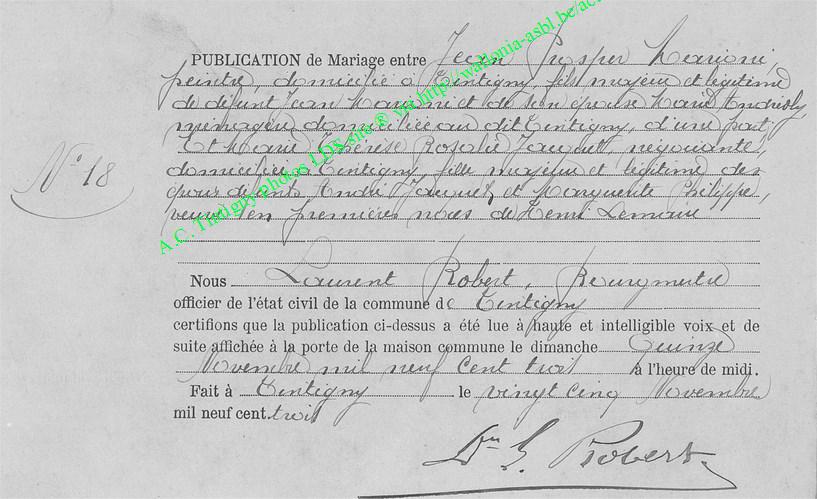 PUBLICATION de Mariage entre Jean Prosper Marioni,
peintre, domicilié à Tintigny, fils majeur et légitime
de défunt Jean Marioni et de son épouse Marie
ménagère domiciliée au dit Tintigny, d'une part,
Et Marie Thérèse Rosalie Jacquet, négociante,
domiciliée Tintigny, fille majeure et légitime des
époux défunts André Jacquet, et Marguerite Philippe,
veuve en premières noces de Henri Lemaire
N° 18
Nous Laurent Robert, Bourgmestre
officier de l'état civil de la commune de Tintigny
certifions que la publication ci-dessus a été lue à haute et intelligible voix et de
suite affichée à la porte de la maison commune le dimanche Quinze
Novembre mil neuf cent trois à l'heure de midi.
Fait à Tintigny le vingt cinq Novembre
mil neuf cent trois
Robert
A.C. Tintigny photos LDK site ® via http://wallonia-asbl.be/ac